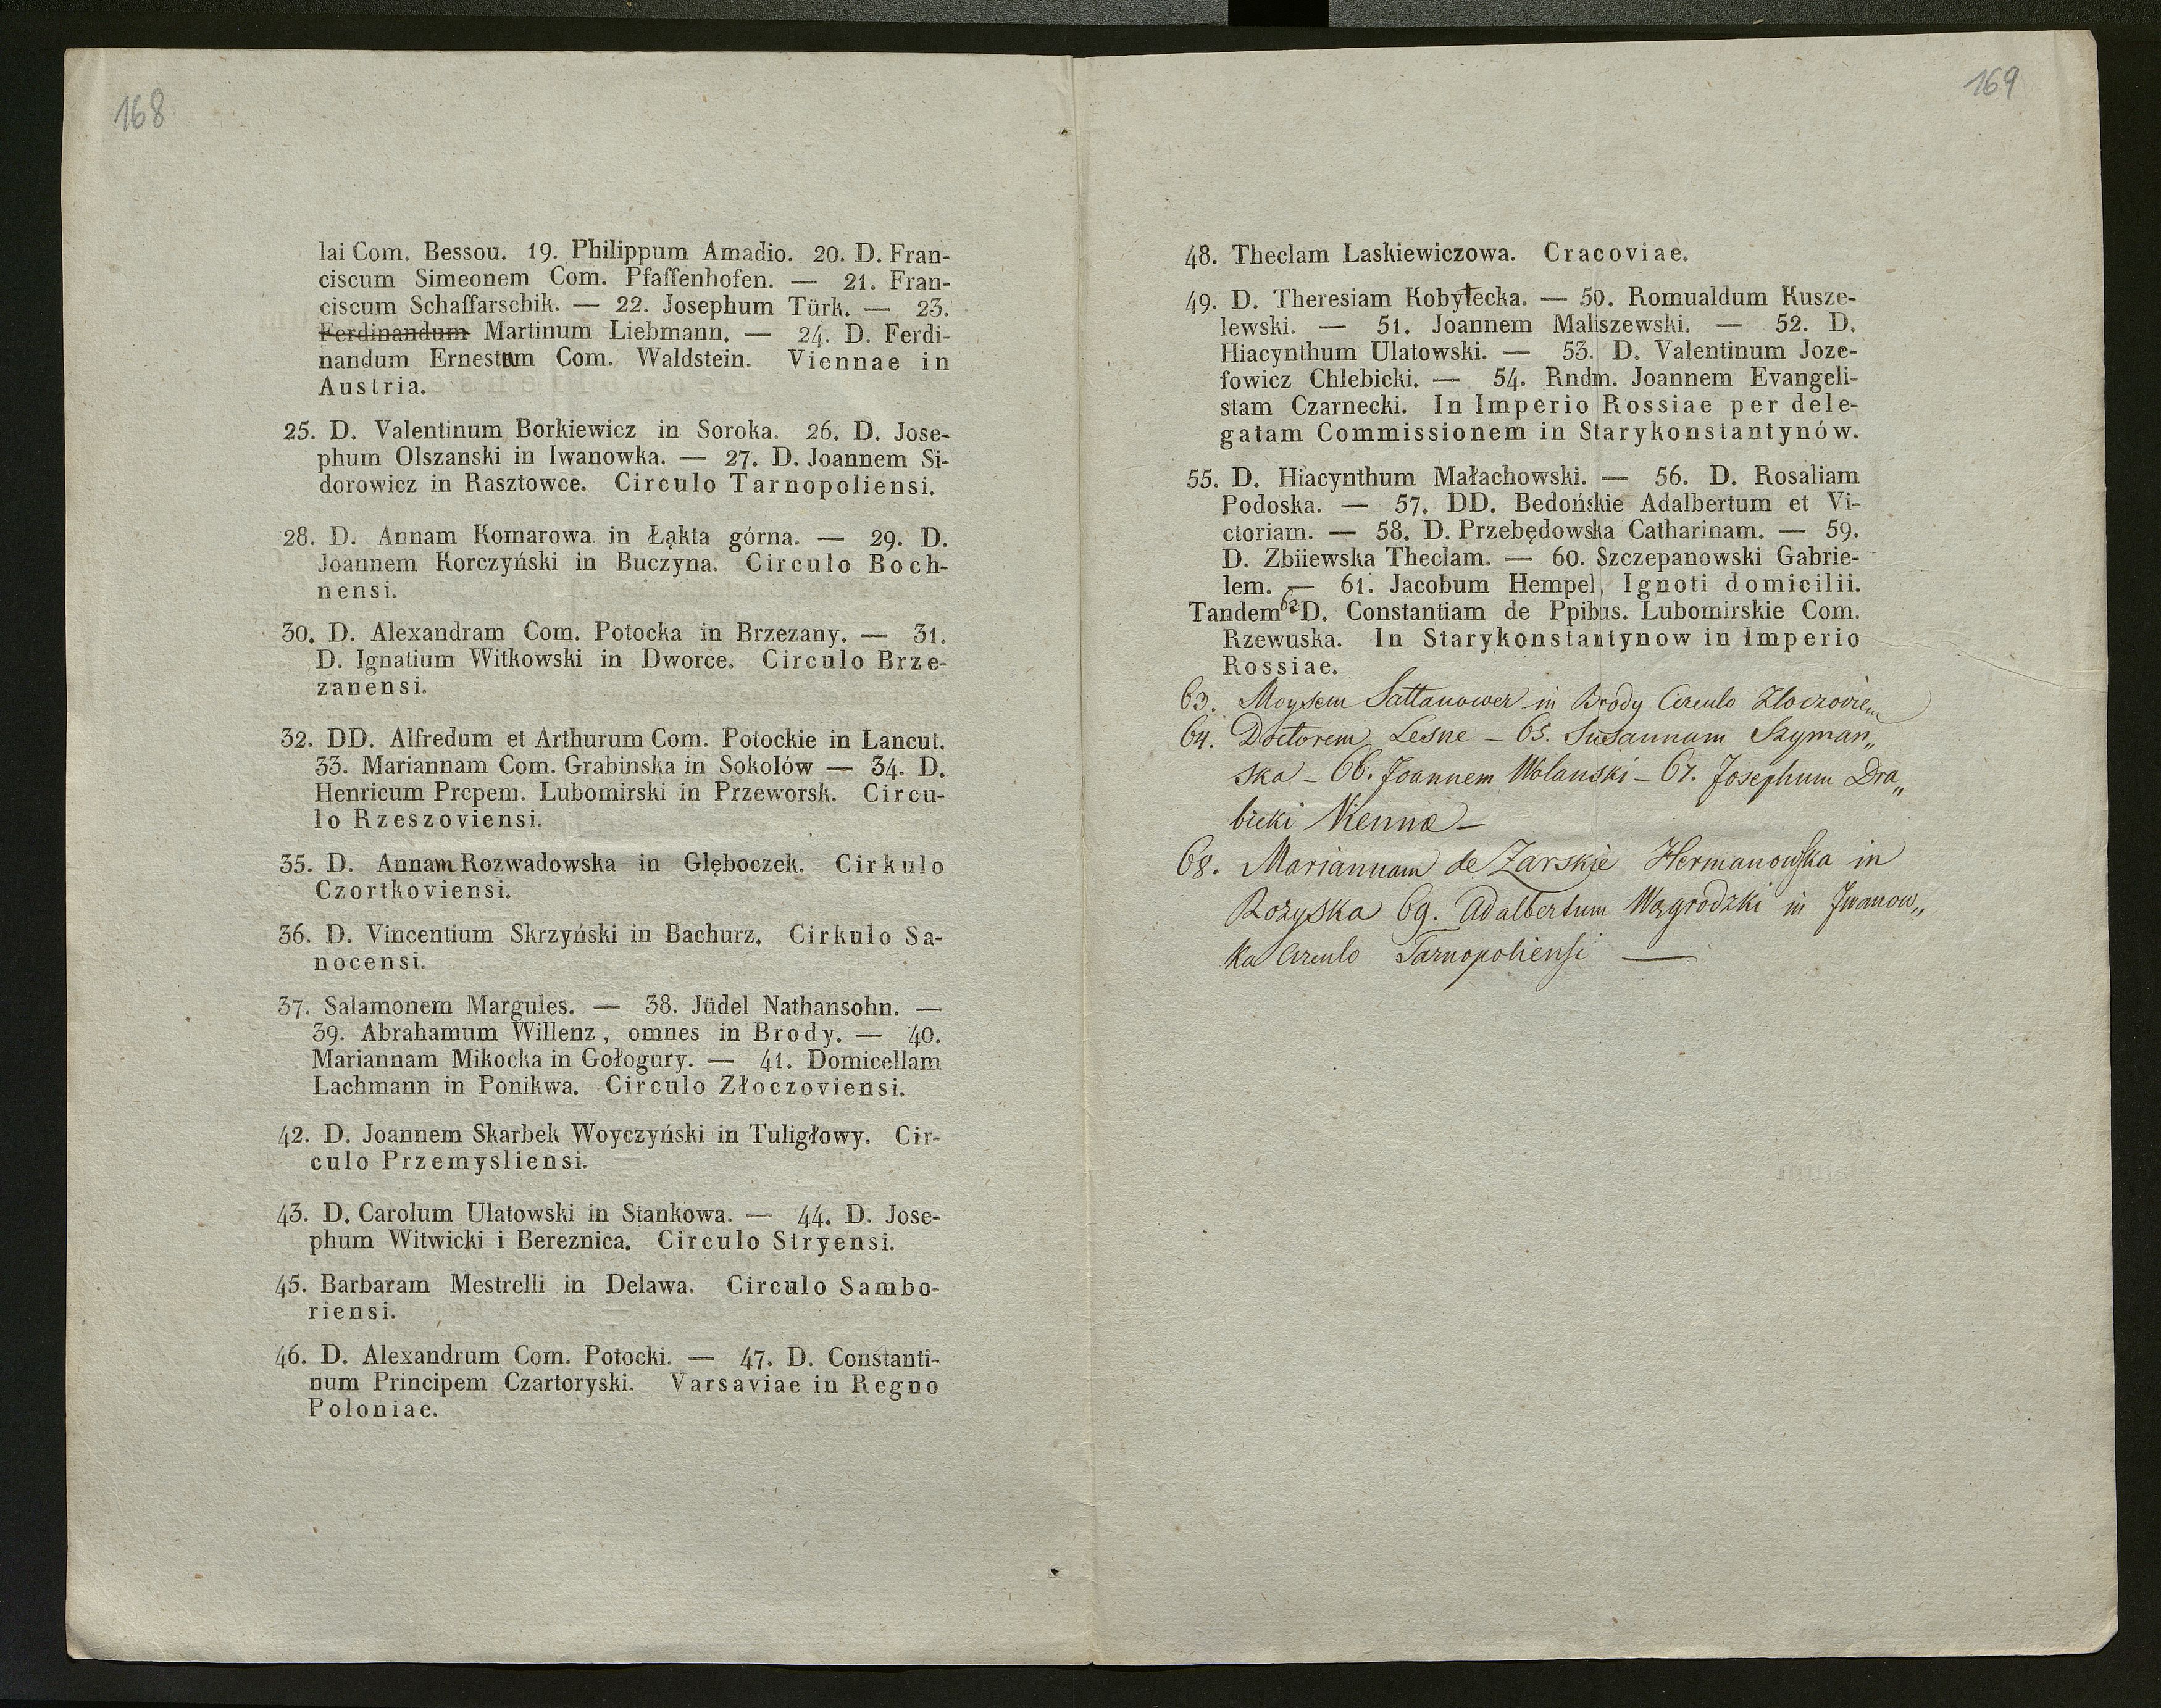 168
lai Com. Bessou. 19. Philippum Amadio. 20. D. Fran-
ciscum Simeonem Com. Pfaffenhofen. — 21. Fran-
ciscum Schaffarschik. — 22. Josephum Türk. — 23.
Ferdinandum Martinum Liebmann. — 24. D. Ferdi-
nandum Ernestum Com. Waldstein. Viennae in
Austria.
25. D. Valentinum Borkiewicz in Soroka. 26. D. Jose-
phum Olszanski in Iwanowka. — 27. D. Joannem Si-
dorowicz in Rasztowce. Circulo Tarnopoliensi.
28. D. Annam Komarowa in Łąkta górna. — 29. D.
Joannem Korczyński in Buczyna. Circulo Boch-
nensi.
30. D. Alexandram Com. Potocka in Brzezany. — 31.
D. Ignatium Witkowski in Dworce. Circulo Brze-
zanensi.
32. DD. Alfredum et Arthurum Com. Potockie in Lancut.
33. Mariannam Com. Grabinska in Sokolów — 34. D.
Henricum Prcpem. Lubomirski in Przeworsk. Circu-
lo Rzeszoviensi.
35. D. Annam Rozwadowska in Głęboczek. Cirkulo
Czortkoviensi.
36. D. Vincentium Skrzyński in Bachurz. Cirkulo Sa-
nocensi.
37. Salamonem Margules. — 38. Jüdel Nathansohn. —
39. Abrahamum Willenz, omnes in Brody. — 40.
Mariannam Mikocka in Gołogury. — 41. Domicellam
Lachmann in Ponikwa. Circulo Złoczoviensi.
42. D. Joannem Skarbek Woyczyński in Tuligłowy. Cir-
culo Przemysliensi.
43. D. Carolum Ulatowski in Stankowa. — 44. D. Jose-
phum Witwicki i Bereznica. Circulo Stryensi.
45. Barbaram Mestrelli in Delawa. Circulo Sambo-
riensi.
46. D. Alexandrum Com. Potocki. — 47. D. Constanti-
num Principem Czartoryski. Varsaviae in Regno
Poloniae.
169
48. Theclam Laskiewiczowa. Cracoviae.
49. D. Theresiam Kobyłecka. — 50. Romualdum Kusze-
lewski. — 51. Joannem Maliszewski. — 52. D.
Hiacynthum Ulatowski. — 53. D. Valentinum Joze-
fowicz Chlebicki. — 54. Rndm. Joannem Evangeli-
stam Czarnecki. In Imperio Rossiae per dele-
gatam Commissionem in Starykonstantynów.
55. D. Hiacynthum Małachowski. — 56. D. Rosaliam
Podoska. — 57. DD. Bedońskie Adalbertum et Vi-
ctoriam. — 58. D. Przebędowska Catharinam. — 59.
D. Zbiiewska Theclam. — 60. Szczepanowski Gabrie-
lem. — 61. Jacobum Hempel, Ignoti domicilii.
Tandem 62 D. Constantiam de Ppibus. Lubomirskie Com.
Rzewuska. In Starykonstantynow in Imperio
Rossiae.
63. Moysem Sattanower in Brody Circulo Zloczovien
64. Doctorem Lesne – 65. Susannam Szyman„
ska – 66. Joannem Wolanski – 67. Josephum Dra„
bicki Viennæ –
68. Mariannam de Zarskie Hermanowska in
Rozyska 69. Adalbertum Wagrodzki in Iwanow„
ka Circulo Tarnopoliensi —